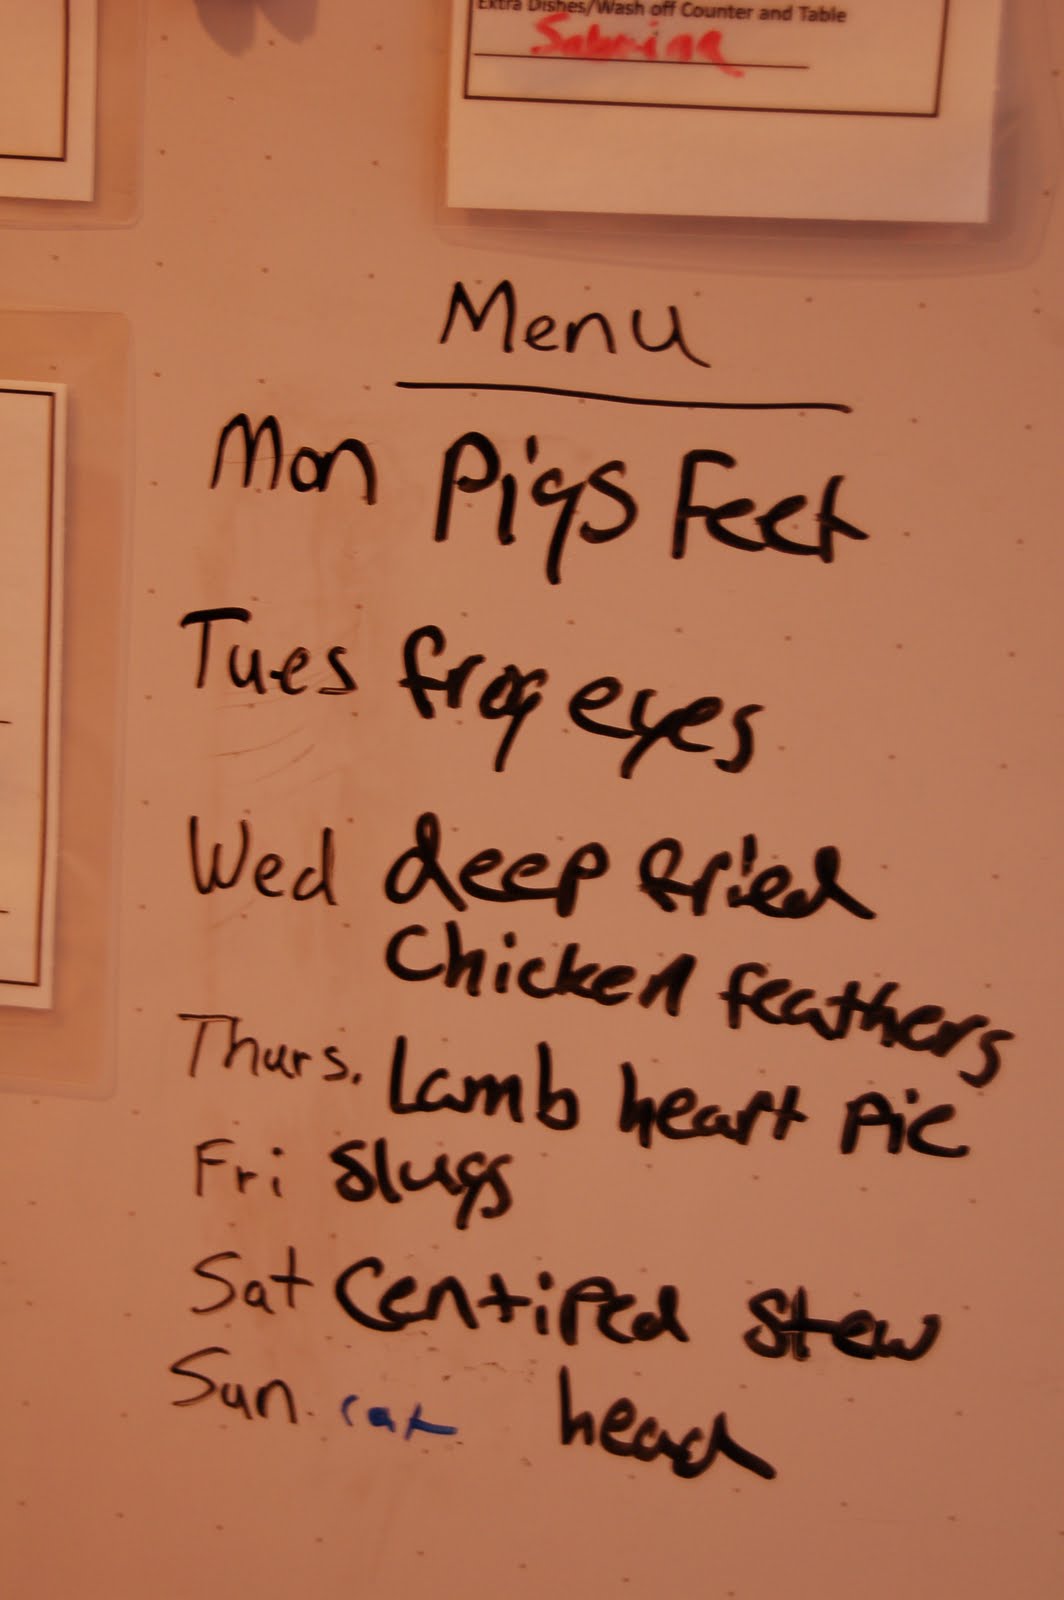 Extra Dishes/Wash off Counter and Table
Sabrina
Menu
Mon Pigs Feet
Tues frog eyes
Wed deep fried
Chicken feathers
Thurs. Lamb heart Pie
Fri Slugs
Sat Centiped Stew
Sun. cat head